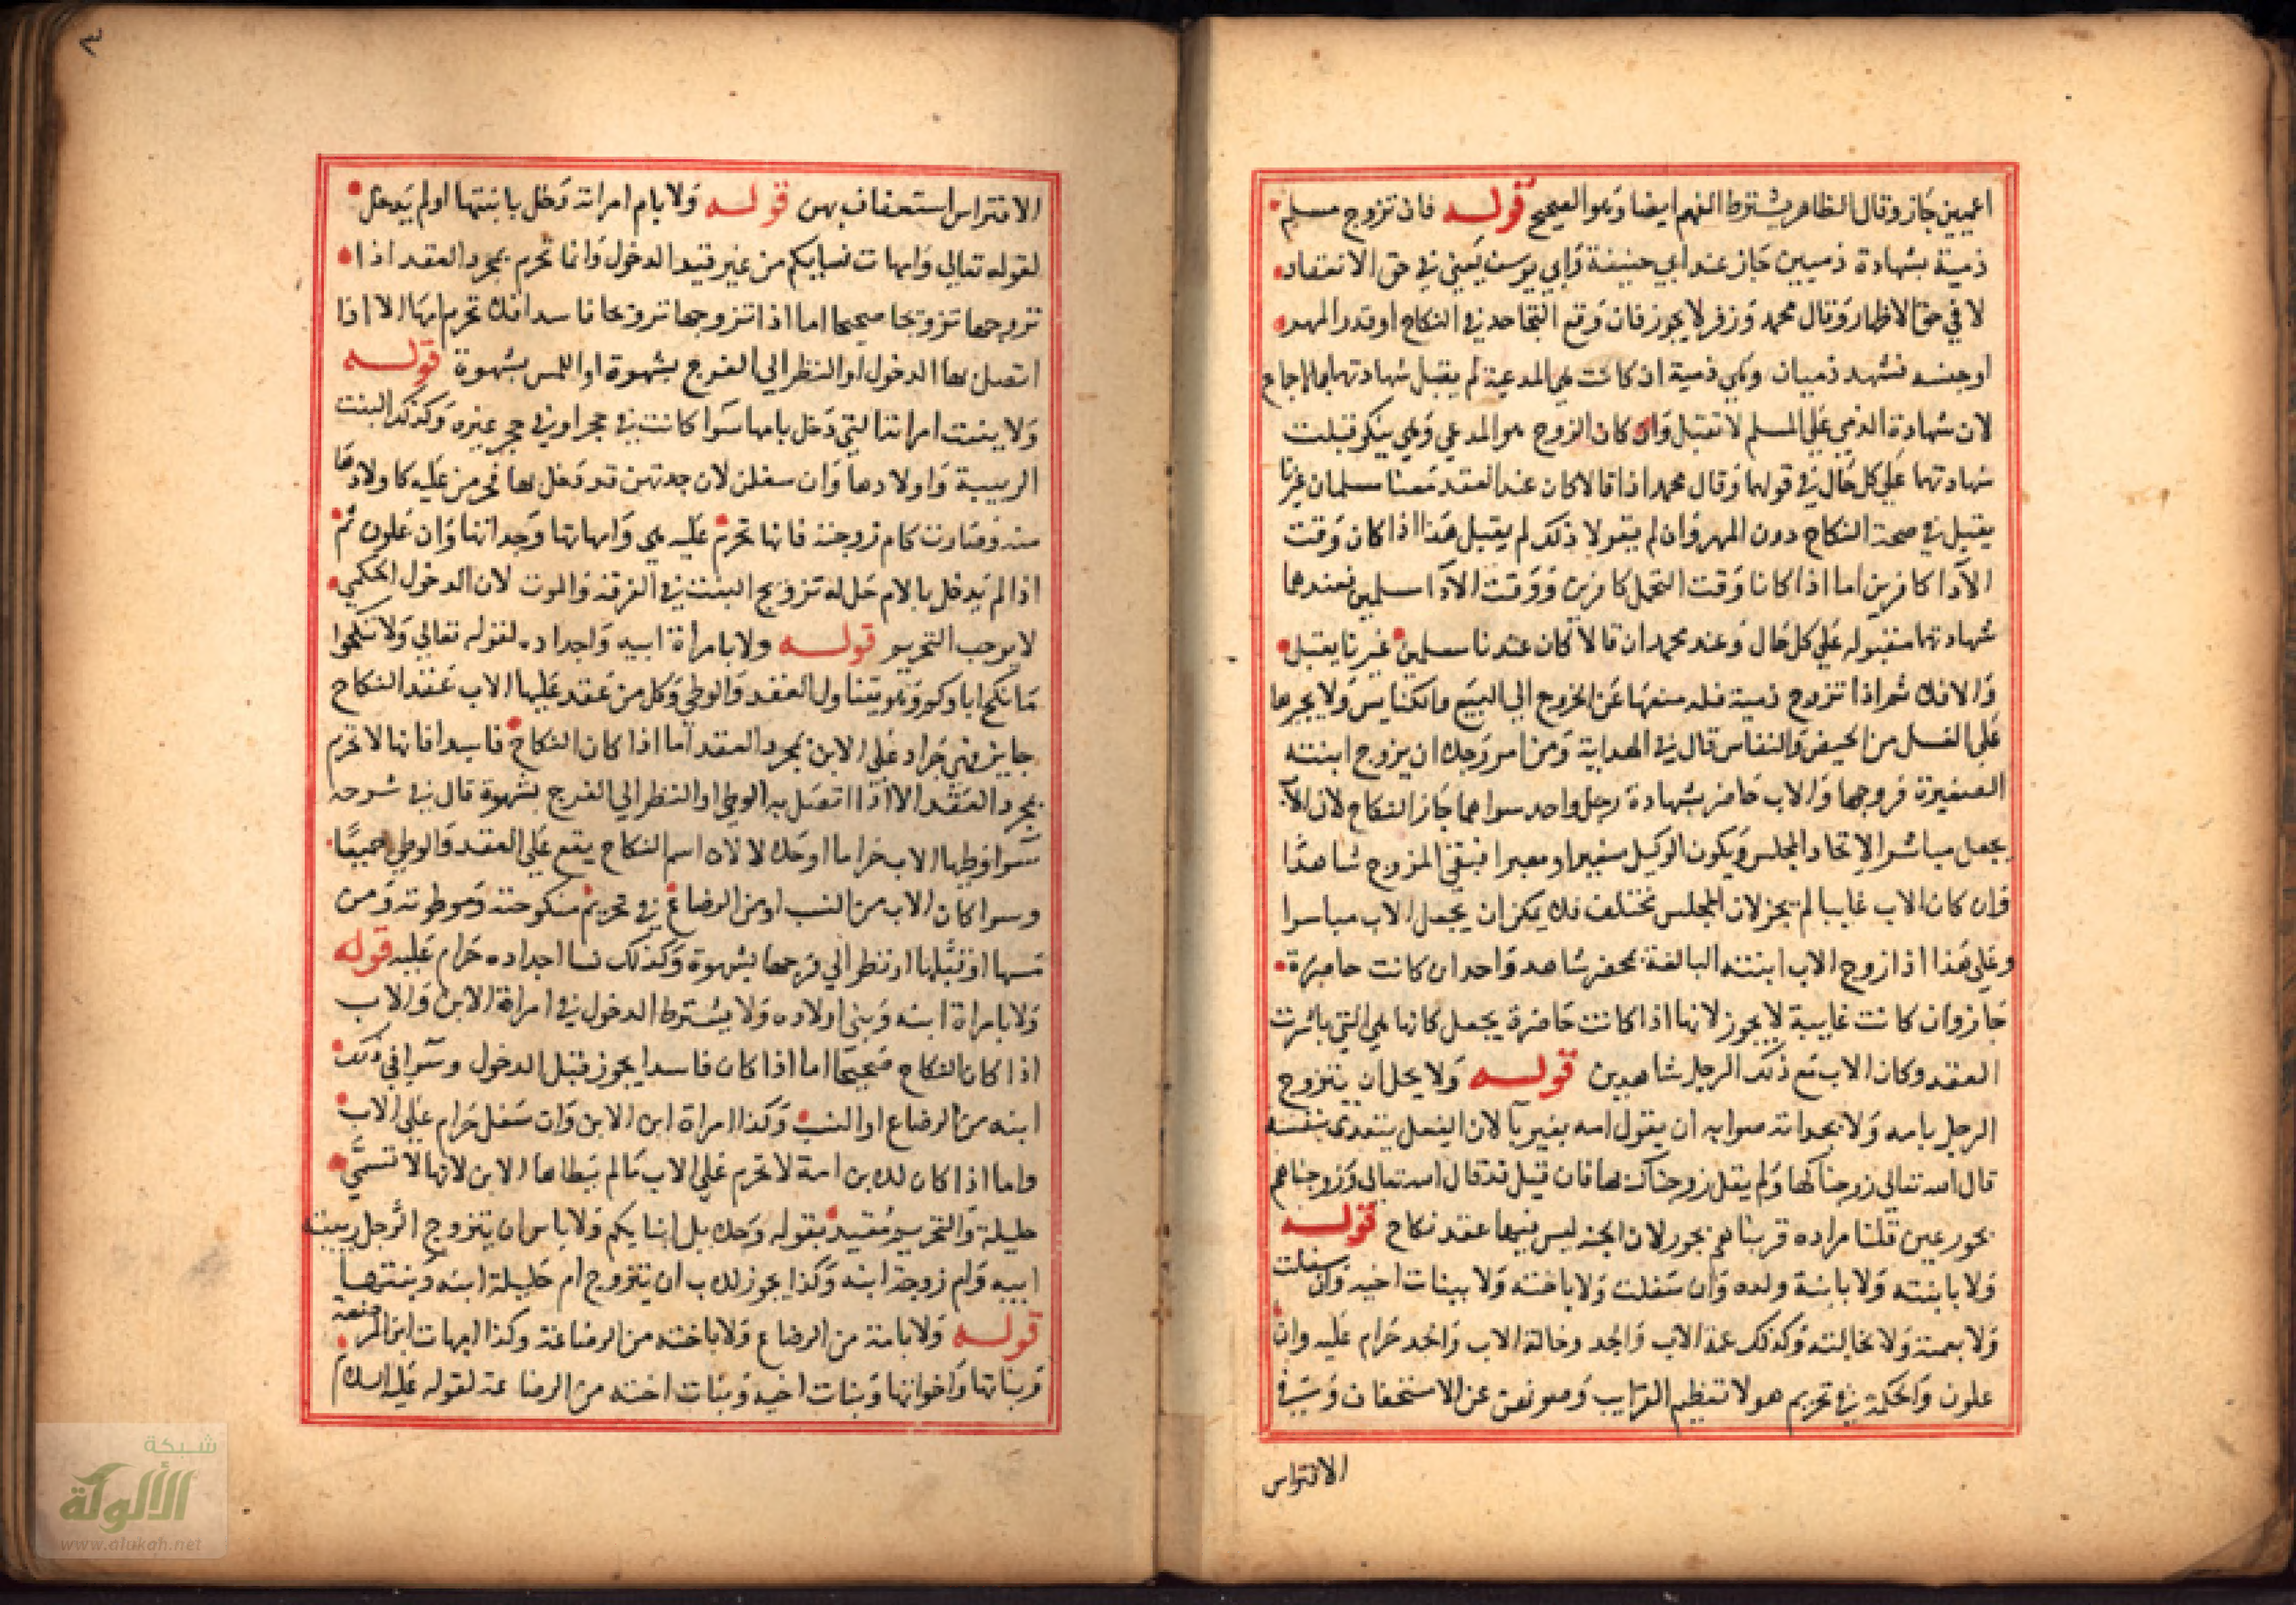 اعميين جاز وقال الظاهر يشترط الفهم ايضا وهو الصحيح قوله فان تزوج مسلم
ذمية بشهادة ذميين جاز عند ابي حنيفة وابي يوسف يعني في حق الانعقاد
لا في حق الاظهار وقال محمد وزفر لا يجوز فان وقع التجاحد في النكاح او قدر المهر
او جنسه فشهد ذميان وهي ذمية ان كانت هي المدعية لم يقبل شهادتهما بالاجماع
لان شهادة الذمي علي المسلم لا تقبل وان كان الزوج هو المدعي وهي ينكر قبلت
شهادتهما علي كل حال في قولهما وقال محمد اذا قالا كان عند العقد معنا مسلمان غيرنا
يقبل في صحة النكاح دون المهر وان لم يقولا ذلك لم يقبل هذا اذا كان وقت
الآدا كافرين اما اذا كانا وقت التحمل كافرين ووقت الادآ مسلمين فعندهما
شهادتهما مقبوله علي كل حال وعند محمد ان قالا كان عندنا مسلمين غيرنا يقبل
والا فلا ثم اذا تزوج ذمية فله منعها عن الخروج الي البيع والكنايس ولا يجبرها
علي الغسل من الحيض والنفاس قال في الهداية ومن امر رجلا ان يزوج ابنته
الصغيرة فزوجها والاب حاضر بشهادة رجل واحد سواهما جاز النكاح لان الاب
يجعل مباشرا لاتحاد المجلس ويكون الوكيل سفيرا ومعبرا فبقي المزوج شاهدا
وان كان الاب غايبا لم يجز لان المجلس مختلف فلا يمكن ان يجعل الاب مباسرا
وعلي هذا اذا زوج الاب ابنته البالغة بمحضر شاهد واحد ان كانت حاضرة
جاز وان كانت غايبة لا يجوز لانها اذا كانت حاضرة يجعل كانها هي التي باشرت
العقد وكان الاب مع ذلك الرجل شاهدين قوله ولا يحل ان يتزوج
الرجل بامه ولا بجداته صوابه ان يقول امه بغير بآ لان الفعل يتعدى بنفسه
قال الله تعالي زوجناكها ولم يقل زوجناك بها فان قيل قد قال الله تعالي وزوجناهم
بحور عين قلنا مراده قرناهم بحور لان الجنه ليس فيها عقد نكاح قوله
ولا بابنته ولا بابنة ولده وان سفلت ولا باخته ولا ببنات اخيه وان سفلت
ولا بعمته ولا بخالته وكذلك عمة الاب والجد وخالة الاب والجد حرام عليه وان
علون والحكمة في تحريم هولا تعظيم القرايب وصونهن عن الاستخفاف وفي
الافتراس
٣
الافتراس استخفاف بهن قوله ولا بام امراته دخل بابنتها او لم يدخل
لقوله تعالي وامهات نسايكم من غير قيد الدخول وانما تحرم بمجرد العقد اذا
تزوجها تزوجا صحيحا اما اذا تزوجها تزوجا فاسدا فلا تحرم امها الا اذا
اتصل بها الدخول او النظر الي الفرج بشهوة او اللمس بشهوة قوله
ولا ببنت امراته التي دخل بامها سوا كانت في حجره او في حجر غيره وكذلك البنت
الربيبة واولادها وان سفلن لان جدتهن قد دخل بها فحرمن عليه كاولادها
منه كام زوجته فانها تحرم عليه هي وامهاتها وجداتها وان علون ثم
اذا لم يدخل بالام حل له تزويج البنت في الفرقة والموت لان الدخول الحكمي
لا يوجب التحريم قوله ولا بامرأة ابيه واجداده لقوله تعالي ولا تنكحوا
ما نكح اباوكم وهو يتناول العقد والوطي وكل من عقد عليها الاب عقد النكاح
جايز فهي حرام علي الابن بمجرد العقد اما اذا كان النكاح فاسدا فانها لا تحرم
بمجرد العقد الا اذا اتصل به الوطي او النظر الي الفرج بشهوة قال في شرحه
سوا وطيها الاب حراما او حلالا لان اسم النكاح يقع علي العقد والوطي جميعا
وسوا كان الاب من النسب او من الرضاع في تحريم منكوحته وموطوته ومن
مسها او قبلها او نظر الي فرجها بشهوة وكذلك نسا اجداده حرام عليه قوله
ولا بامراة ابنه وبني اولاده ولا يشترط الدخول في امراة الابن والاب
اذا كان النكاح صحيحا اما اذا كان فاسدا يجوز قبل الدخول وسوا في ذلك
ابنه من الرضاع او النسب وكذا امراة ابن الابن وان سفل حرام علي الاب
واما اذا كان للابن امة لا تحرم علي الاب مالم يطاها الابن لانها لا تسمي
حليلة والتحريم مقيد بقوله وحلايل ابنايكم ولا باس ان يتزوج الرجل ربيبة
ابيه وام زوجة ابنه وكذا يجوز للاب ان يتزوج ام حليلة ابنه وبنتها
قوله ولا بامه من الرضاع ولا باخته من الرضاعة وكذا امهات المرضعة
وبناتها واخواتها وبنات اخيه وبنات اخته من الرضاعة لقوله عليه السلام
شبكة
الألوكة
www.alukah.net